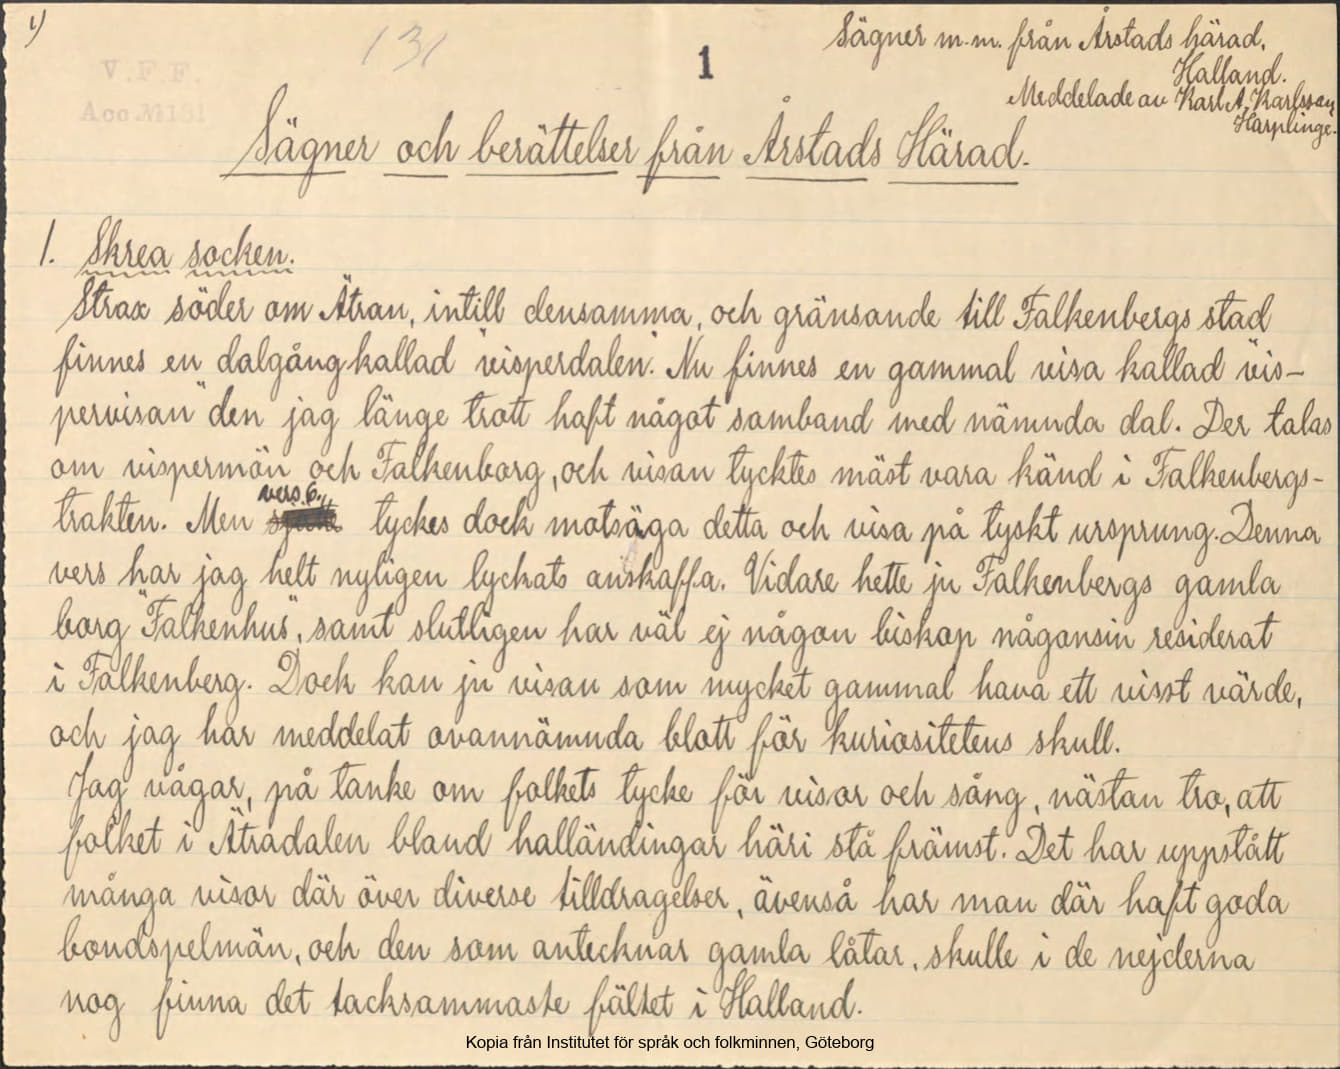 1)
131
1
V.F.F.
Acc.№131
Sägner m.m. från Årstads härad,
Halland.
Meddelade av Karl A. Karlsson,
Harplinge.
Sägner och berättelser från Årstads Härad.
1. Skrea socken.
Strax söder om Ätran, intill densamma, och gränsande till Falkenbergs stad
finnes en dalgång kallad "visperdalen". Nu finnes en gammal visa kallad "vis-
pervisan" den jag länge trott haft något samband med nämnda dal. Der talas
om vispermön och Falkenborg, och visan tycktes mäst vara känd i Falkenbergs-
trakten. Men vers 6. tyckes dock motsäga detta och visa på tyskt ursprung. Denna
vers har jag helt nyligen lyckats anskaffa. Vidare hette ju Falkenbergs gamla
borg "Falkenhus", samt slutligen har väl ej någon biskop någonsin residerat
i Falkenberg. Dock kan ju visan som mycket gammal hava ett visst värde,
och jag har meddelat ovannämnda blott för kuriositetens skull.
Jag vågar, på tanke om folkets tycke för visor och sång, nästan tro, att
folket i Ätradalen bland halländingar häri stå främst. Det har uppstått
många visor där över diverse tilldragelser, ävenså har man där haft goda
bondspelmän, och den som antecknar gamla låtar, skulle i de nejderna
nog finna det tacksammaste fältet i Halland.
Kopia från Institutet för språk och folkminnen, Göteborg